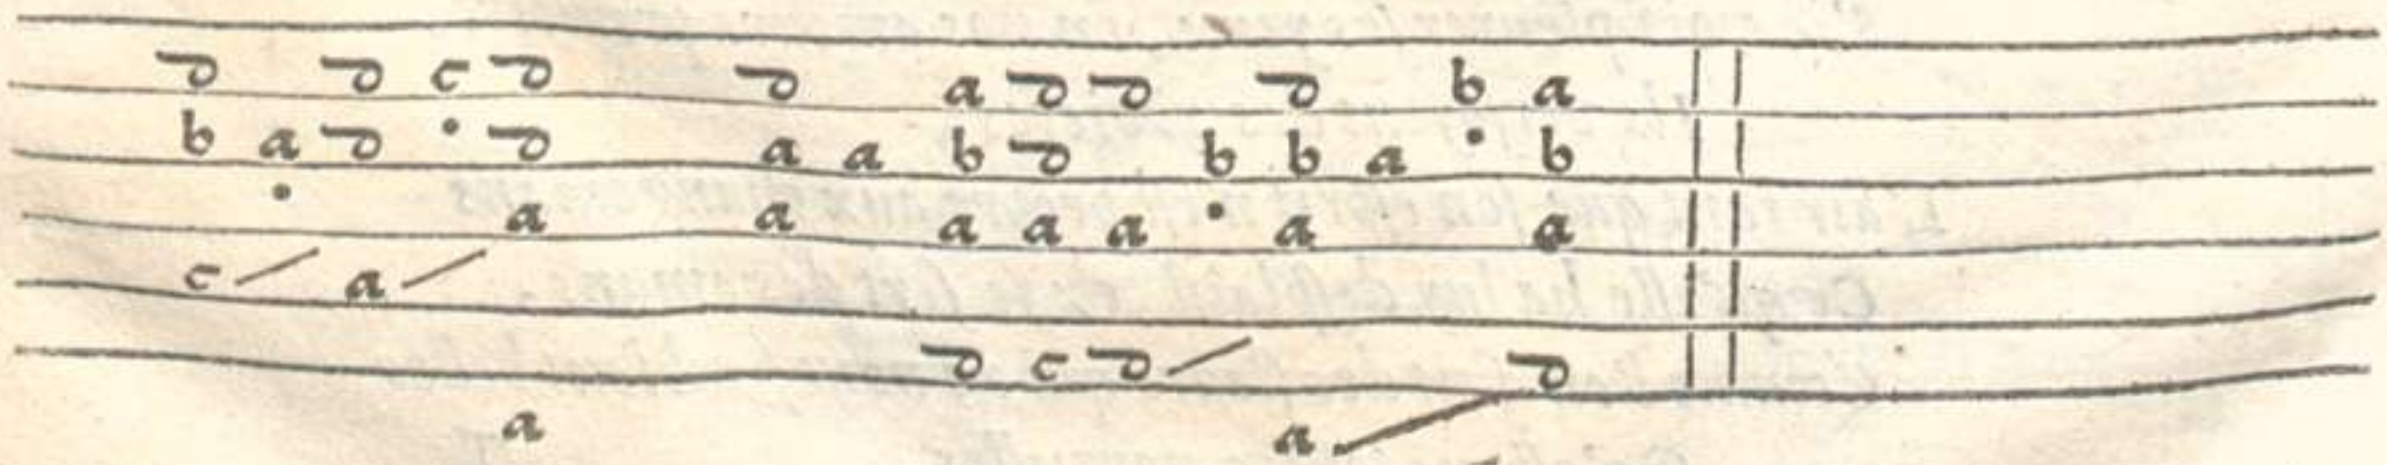 d d c d d a d d d b a
b a d · d a a b d b b a · b
· a a a a a · a a
c a
d c d d
a a